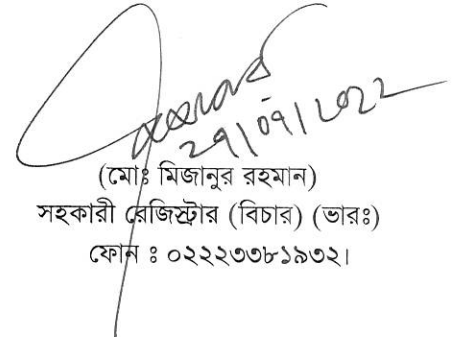 ২৭/০৭/২০২২
(মোঃ মিজানুর রহমান)
সহকারী রেজিস্ট্রার (বিচার) (ভারঃ)
ফোন : ০২২২৩৩৮১৯৩২।